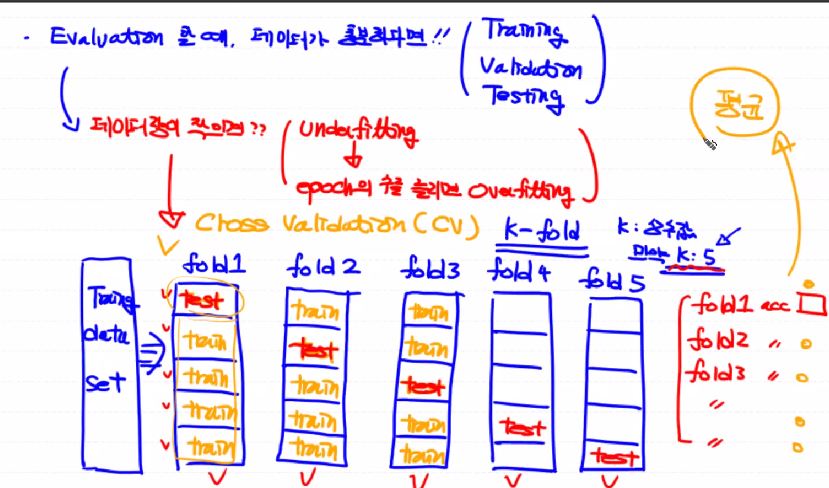 · Evaluation 할 때, 데이터가 충분하다면!! (Training
Validation
Testing)
데이터량이 작으면?? (Underfitting
epoch의 수를 늘리면 Overfitting)
평균
Cross Validation (CV)
K-fold
K: 상수값
만약 K: 5
fold1 fold2 fold3 fold4 fold5
Traing
data
set
test
train
train
train
train
train
test
train
train
train
train
train
test
train
train
test
test
fold1 acc
fold2 〃
fold3 〃
〃
〃